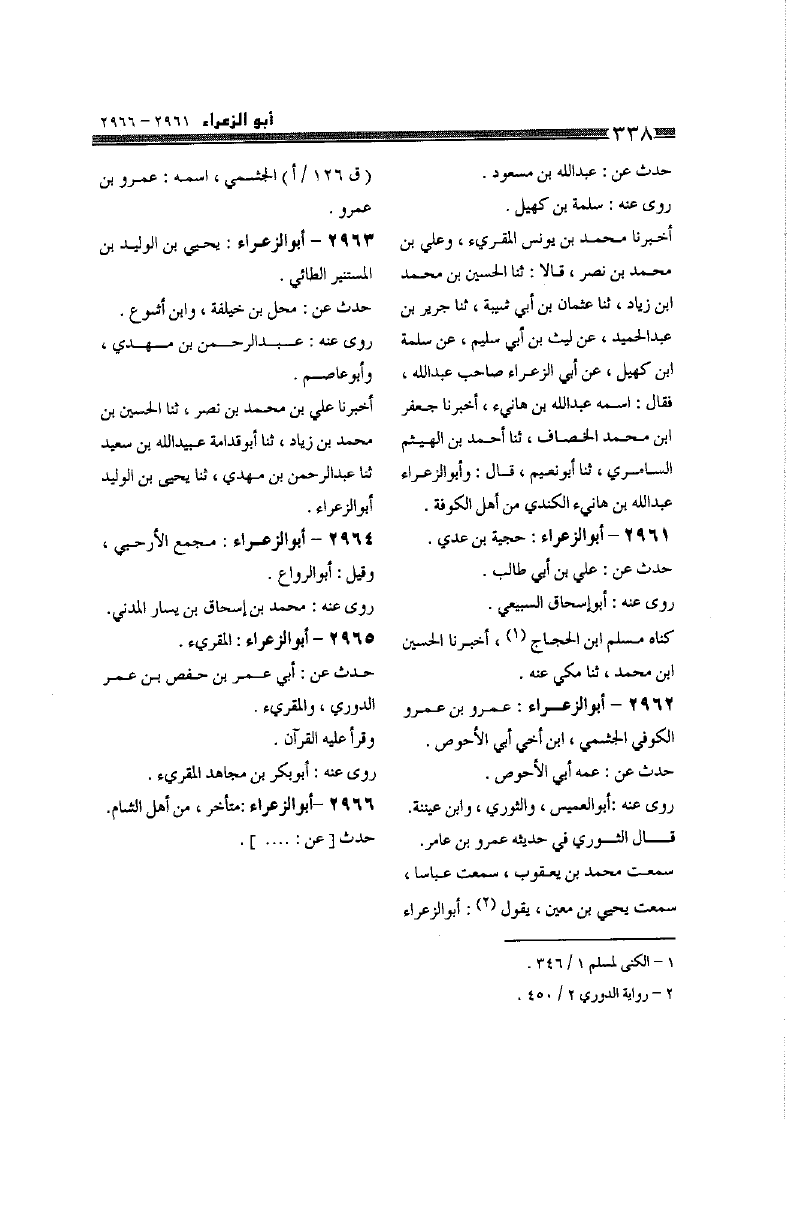 أبو الزعراء ٢٩٦١ – ٢٩٦٦
٣٣٨
حدث عن : عبدالله بن مسعود .
روى عنه : سلمة بن كهيل .
أخبرنا محمد بن يونس المقريء ، وعلي بن
محمد بن نصر ، قالا : ثنا الحسين بن محمد
ابن زياد ، ثنا عثمان بن أبي شيبة ، ثنا جرير بن
عبدالحميد ، عن ليث بن أبي سليم ، عن سلمة
ابن كهيل ، عن أبي الزعراء صاحب عبدالله ،
فقال : اسمه عبدالله بن هانيء ، أخبرنا جعفر
ابن محمد الخصاف ، ثنا أحمد بن الهيثم
السامري ، ثنا أبونعيم ، قال : وأبوالزعراء
عبدالله بن هانيء الكندي من أهل الكوفة .
٢٩٦١ – أبوالزعراء : حجية بن عدي .
حدث عن : علي بن أبي طالب .
روى عنه : أبوإسحاق السبيعي .
كناه مسلم ابن الحجاج (١) ، أخبرنا الحسين
ابن محمد ، ثنا مكي عنه .
٢٩٦٢ – أبوالزعراء : عمرو بن عمرو
الكوفي الجشمي ، ابن أخي أبي الأحوص .
حدث عن : عمه أبي الأحوص .
روى عنه :أبوالعميس ، والثوري ، وابن عيينة.
قال الثوري في حديثه عمرو بن عامر.
سمعت محمد بن يعقوب ، سمعت عباسا ،
سمعت يحيي بن معين ، يقول (٢) : أبوالزعراء
(ق ١٢٦ / أ) الجشمي ، اسمه : عمرو بن
عمرو .
٢٩٦٣ – أبوالزعراء : يحيي بن الوليد بن
المستنير الطائي .
حدث عن : محل بن خيلفة ، وابن أشوع .
روى عنه : عبدالرحمن بن مهدي ،
وأبوعاصم .
أخبرنا علي بن محمد بن نصر ، ثنا الحسين بن
محمد بن زياد ، ثنا أبوقدامة عبيدالله بن سعيد
ثنا عبدالرحمن بن مهدي ، ثنا يحيى بن الوليد
أبوالزعراء .
٢٩٦٤ – أبوالزعراء : مجمع الأرحبي ،
وقيل : أبوالرواع .
روى عنه : محمد بن إسحاق بن يسار المدني.
٢٩٦٥ – أبوالزعراء : المقريء .
حدث عن : أبي عمر بن حفص بن عمر
الدوري ، والمقريء .
وقرأ عليه القرآن .
روى عنه : أبوبكر بن مجاهد المقريء .
٢٩٦٦ –أبوالزعراء :متأخر ، من أهل الشام.
حدث [ عن : .... ] .
١ – الكنى لمسلم ١ / ٣٤٦ .
٢ – رواية الدوري ٢ / ٤٥٠ .